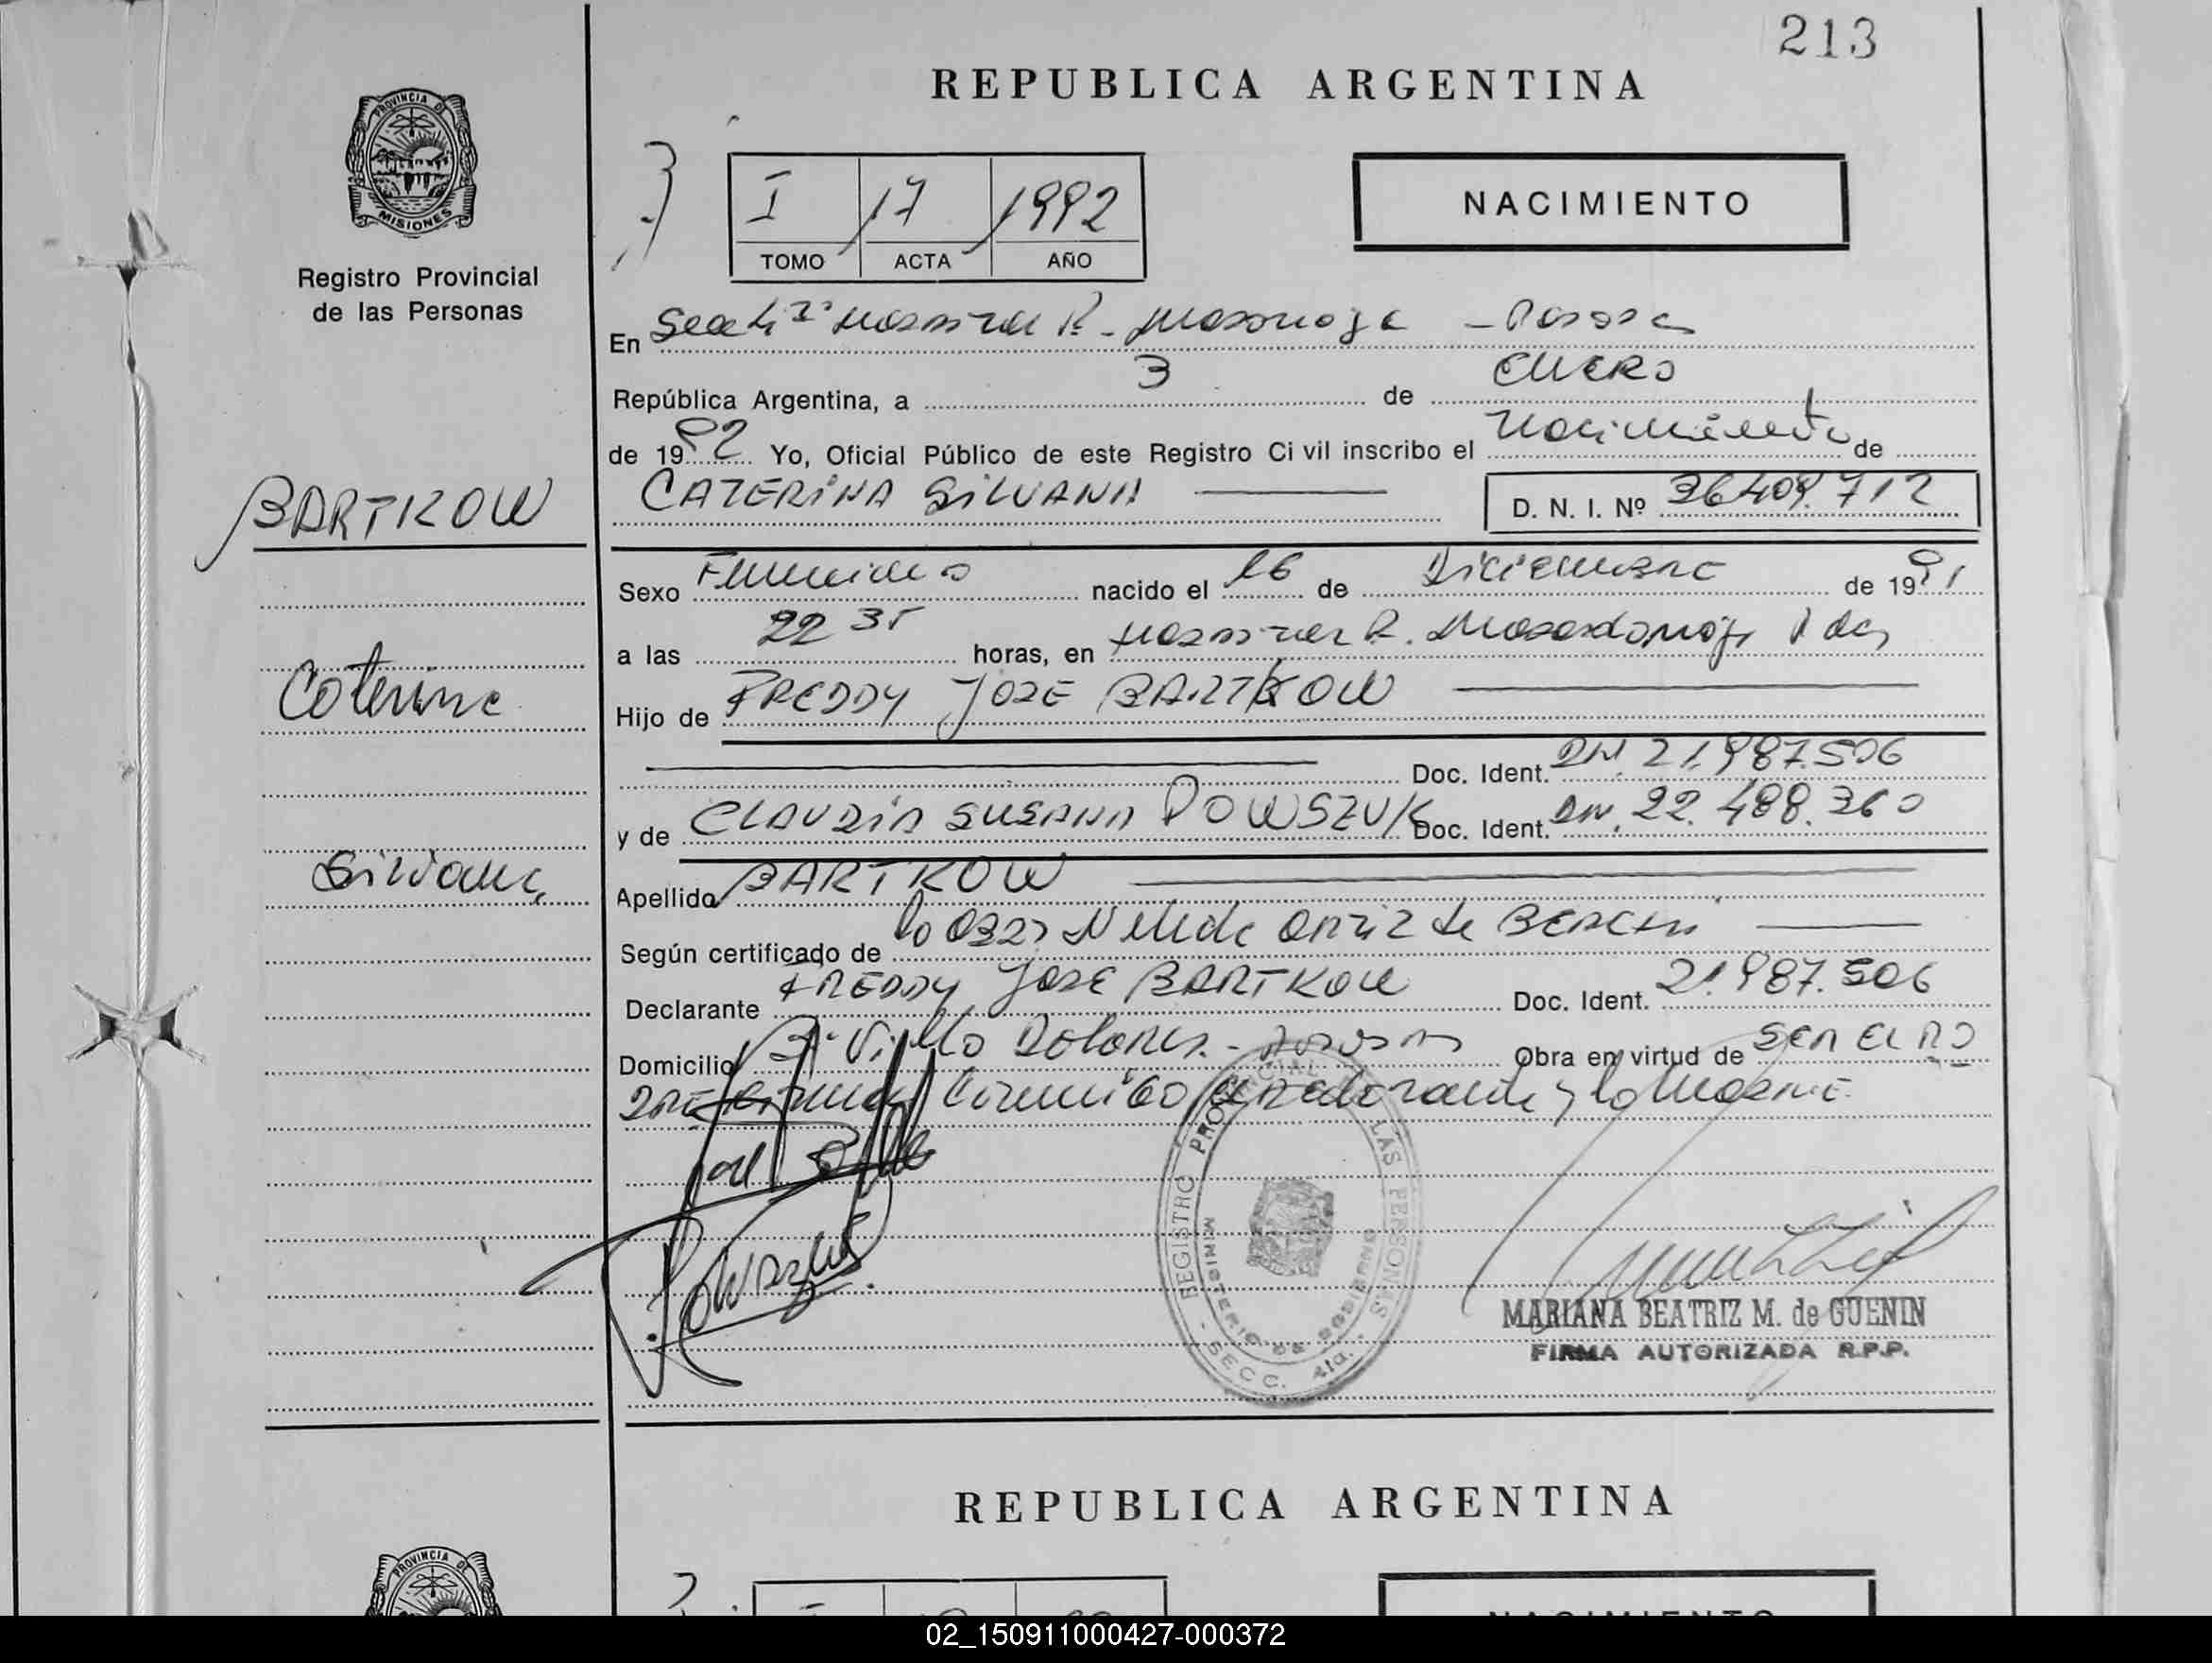 213
REPUBLICA ARGENTINA
PROVINCIA DE
MISIONES
Registro Provincial
de las Personas
I 17 1992
TOMO ACTA AÑO
NACIMIENTO
En
República Argentina, a 3 de ENERO
de 1992 Yo, Oficial Público de este Registro Ci vil inscribo el Nacimiento de
CATERINA SILVANA
D. N. I. Nº 36.409.712
BARTKOW
Caterina
Silvana
Sexo Femenino nacido el 16 de Diciembre de 1991
a las 22 35 horas, en R. Posadas
Hijo de FREDDY JOSE BARTKOW
Doc. Ident. DNI. 21.987.506
y de CLAUDIA SUSANA POWSZUK Doc. Ident. DNI. 22.488.360
Apellido BARTKOW
Según certificado de
Declarante FREDDY JOSE BARTKOW Doc. Ident. 21.987.506
Domicilio Bº Villa Dolores - Posadas Obra en virtud de SER EL PA
DRE Firman conmigo el declarante y la madre.
Powszuk
REGISTRO PROVINCIAL DE LAS PERSONAS
MINISTERIO DE GOBIERNO
- SECC. 4ta. -
MARIANA BEATRIZ M. de GUENIN
FIRMA AUTORIZADA R.P.P.
REPUBLICA ARGENTINA
PROVINCIA DE
NACIMIENTO
02_150911000427-000372